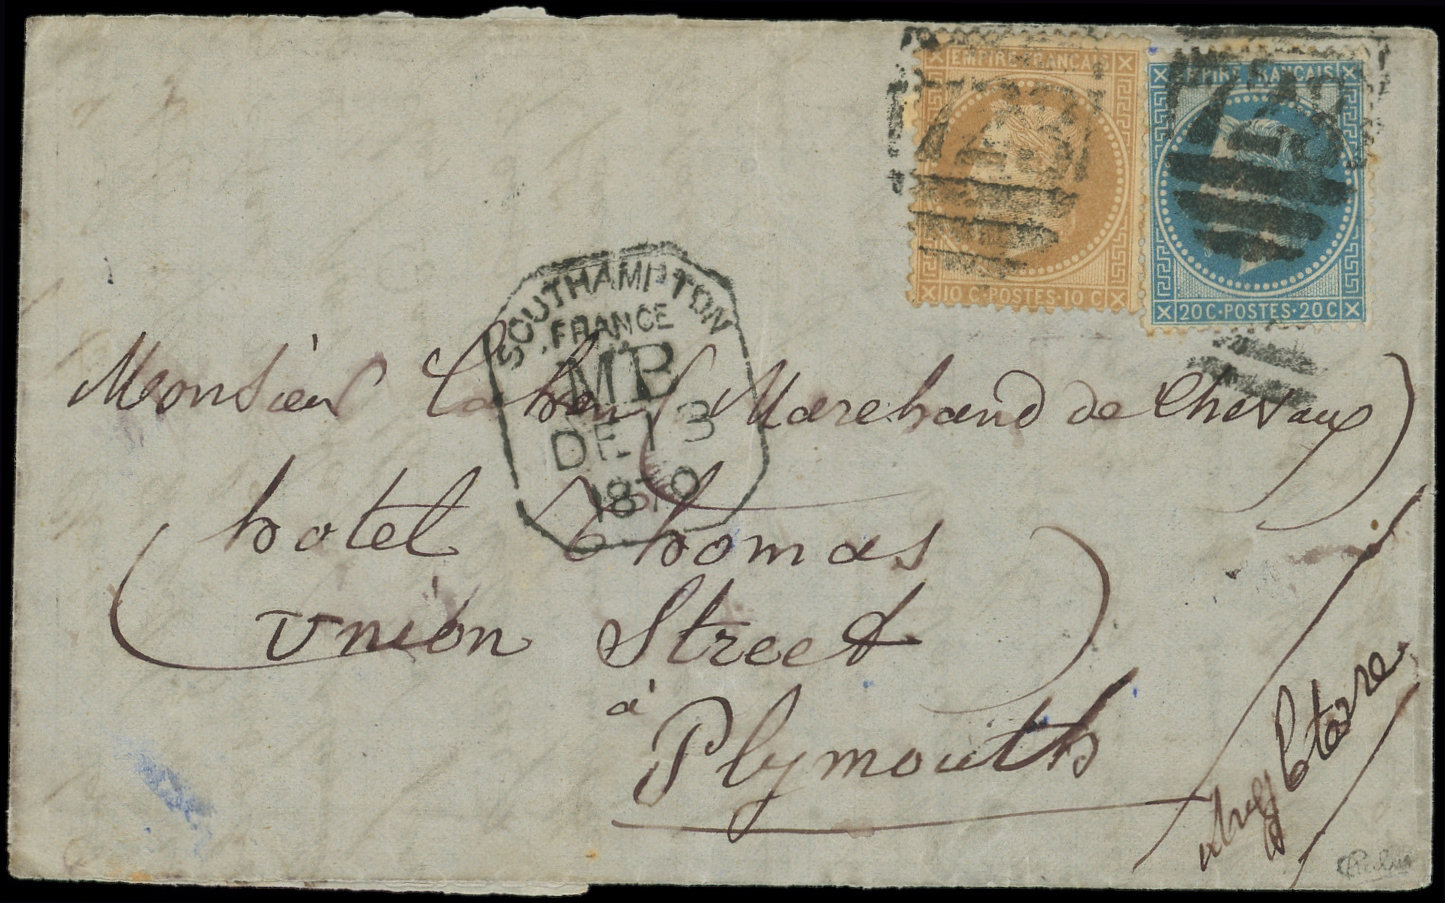 EMPIRE FRANÇAIS
10 C · POSTES · 10 C
EMPIRE FRANÇAIS
20 C · POSTES · 20 C
723
723
SOUTHAMPTON
FRANCE
MB
DE 13
1870
Monsieur Cahen Marchand de Chevaux
hotel Thomas
Union Street
à
Plymouth
Angleterre